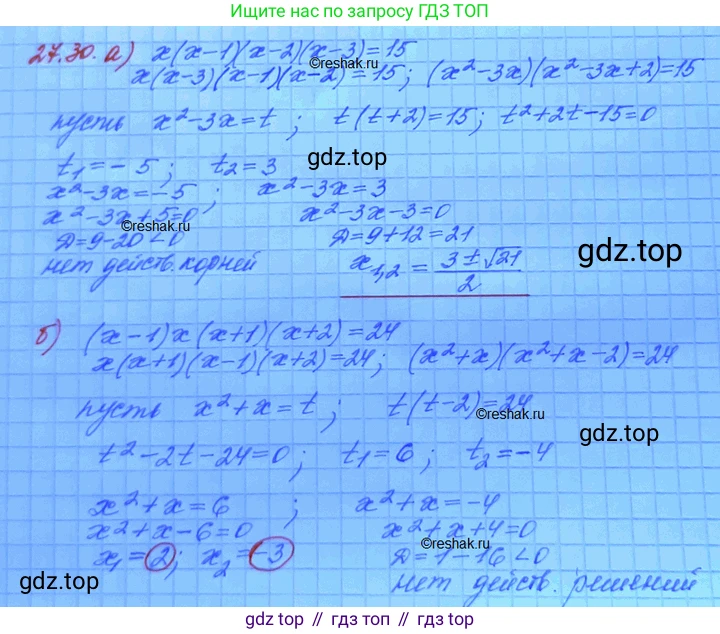 Ищите нас по запросу ГДЗ ТОП
27.30. а) x(x-1)(x-2)(x-3)=15
©reshak.ru
x(x-3)(x-1)(x-2)=15; (x²-3x)(x²-3x+2)=15
пусть x²-3x=t; t(t+2)=15; t²+2t-15=0
t₁=-5; t₂=3
gdz.top
x²-3x=-5; x²-3x=3
x²-3x+5=0 x²-3x-3=0
©reshak.ru
Д=9-20<0 Д=9+12=21
gdz.top
нет действ. корней x₁,₂ = (3±√21)/2
б) (x-1)x(x+1)(x+2)=24
x(x+1)(x-1)(x+2)=24; (x²+x)(x²+x-2)=24
пусть x²+x=t; t(t-2)=24
©reshak.ru
gdz.top
t²-2t-24=0; t₁=6; t₂=-4
x²+x=6; x²+x=-4
x²+x-6=0 x²+x+4=0
©reshak.ru
x₁=2; x₂=-3 Д=1-16<0
gdz.top
нет действ. решений
gdz.top // гдз.топ // гдз.top